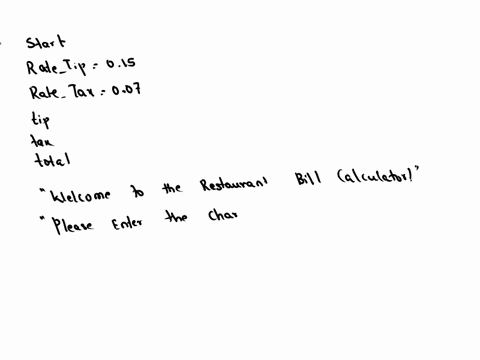 Start
Rate_Tip = 0.15
Rate_Tax = 0.07
tip
tax
total
"Welcome to the Restaurant Bill Calculator!"
"Please Enter the Char